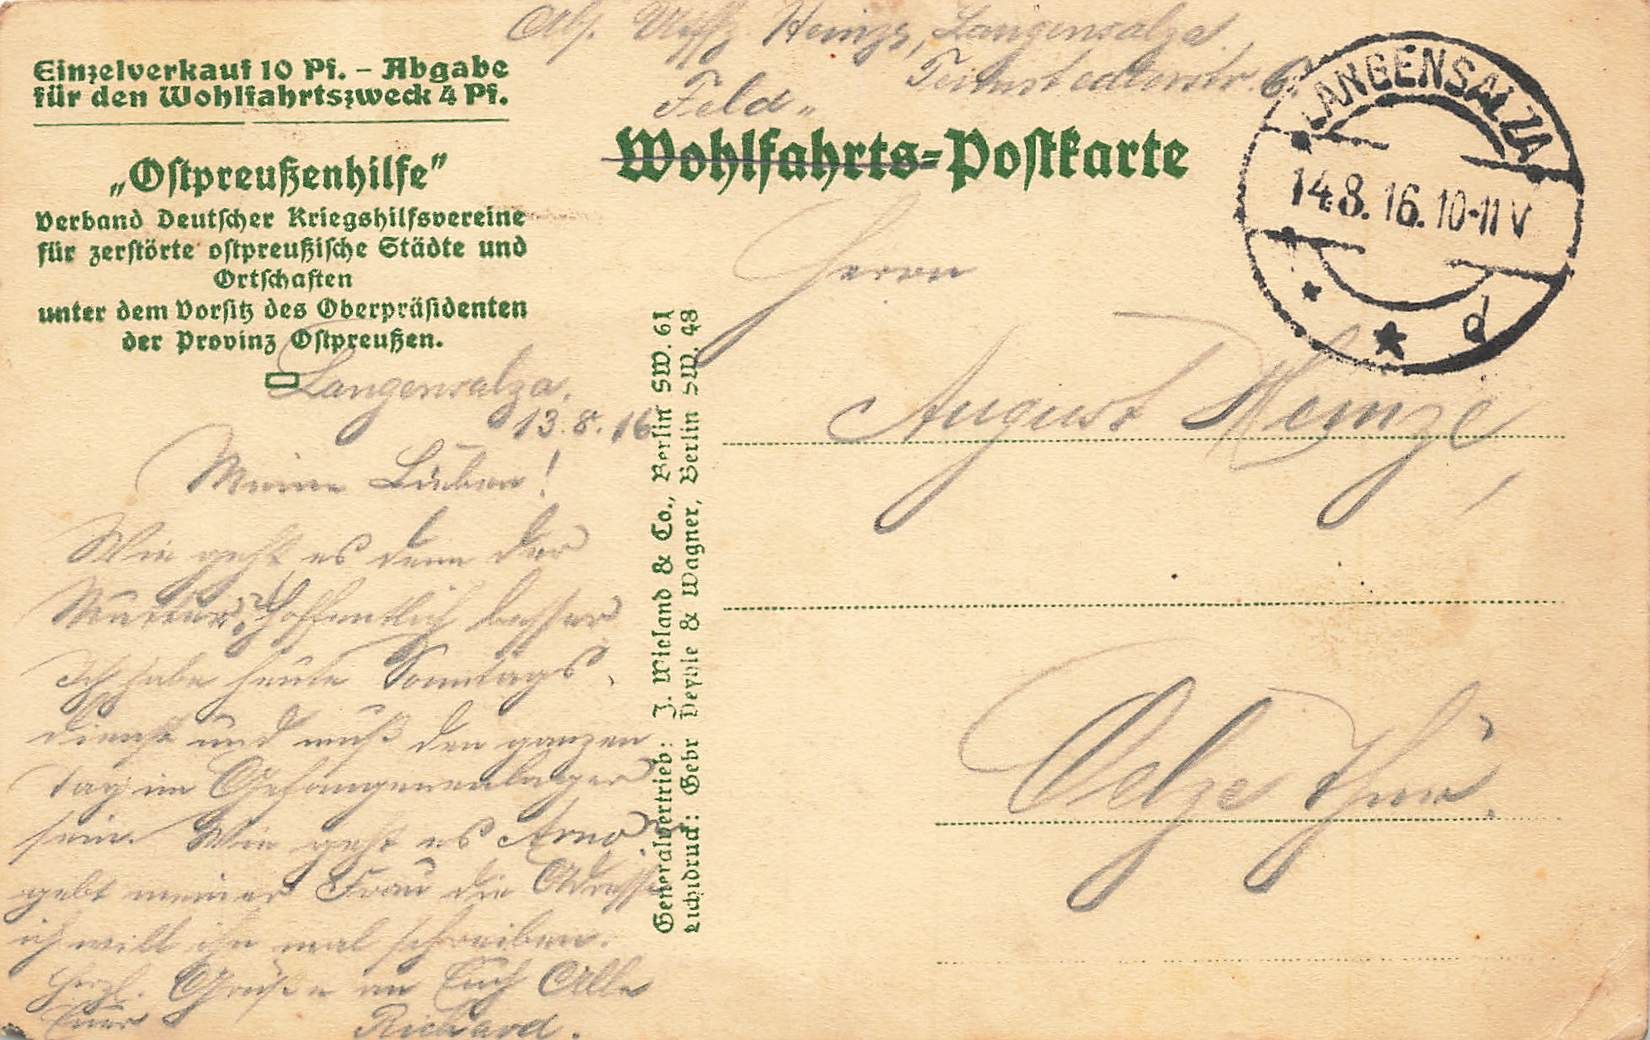 Einzelverkauf 10 Pf. – Abgabe
für den Wohlfahrtszweck 4 Pf.
„Ostpreußenhilfe"
Verband Deutscher Kriegshilfsvereine
für zerstörte ostpreußische Städte und
Ortschaften
unter dem Vorsitz des Oberpräsidenten
der Provinz Ostpreußen.
Langensalza,
13.8.16
Meine Lieben!
Wie geht es denn der
Mutter? Hoffentlich besser.
Ich habe heute Sonntags
dienst und muß den ganzen
tag im Gefangenenlager
sein. Wie geht es Arno?
gebt meiner Frau die Adresse
ich will ihn mal schreiben.
Herzl. Grüße an Euch Alle
Euer Richard.
Generalvertrieb: J. Wieland & Co., Berlin SW. 61
Lichtdruck: Gebr Deyhle & Wagner, Berlin SW. 48
Abs. Uffz. Heinze, Langensalza,
6
Feld-
Wohlfahrts-Postkarte
LANGENSALZA
14.8.16.10-11V
d
Herrn
August Heinze,
Oelze Thür.